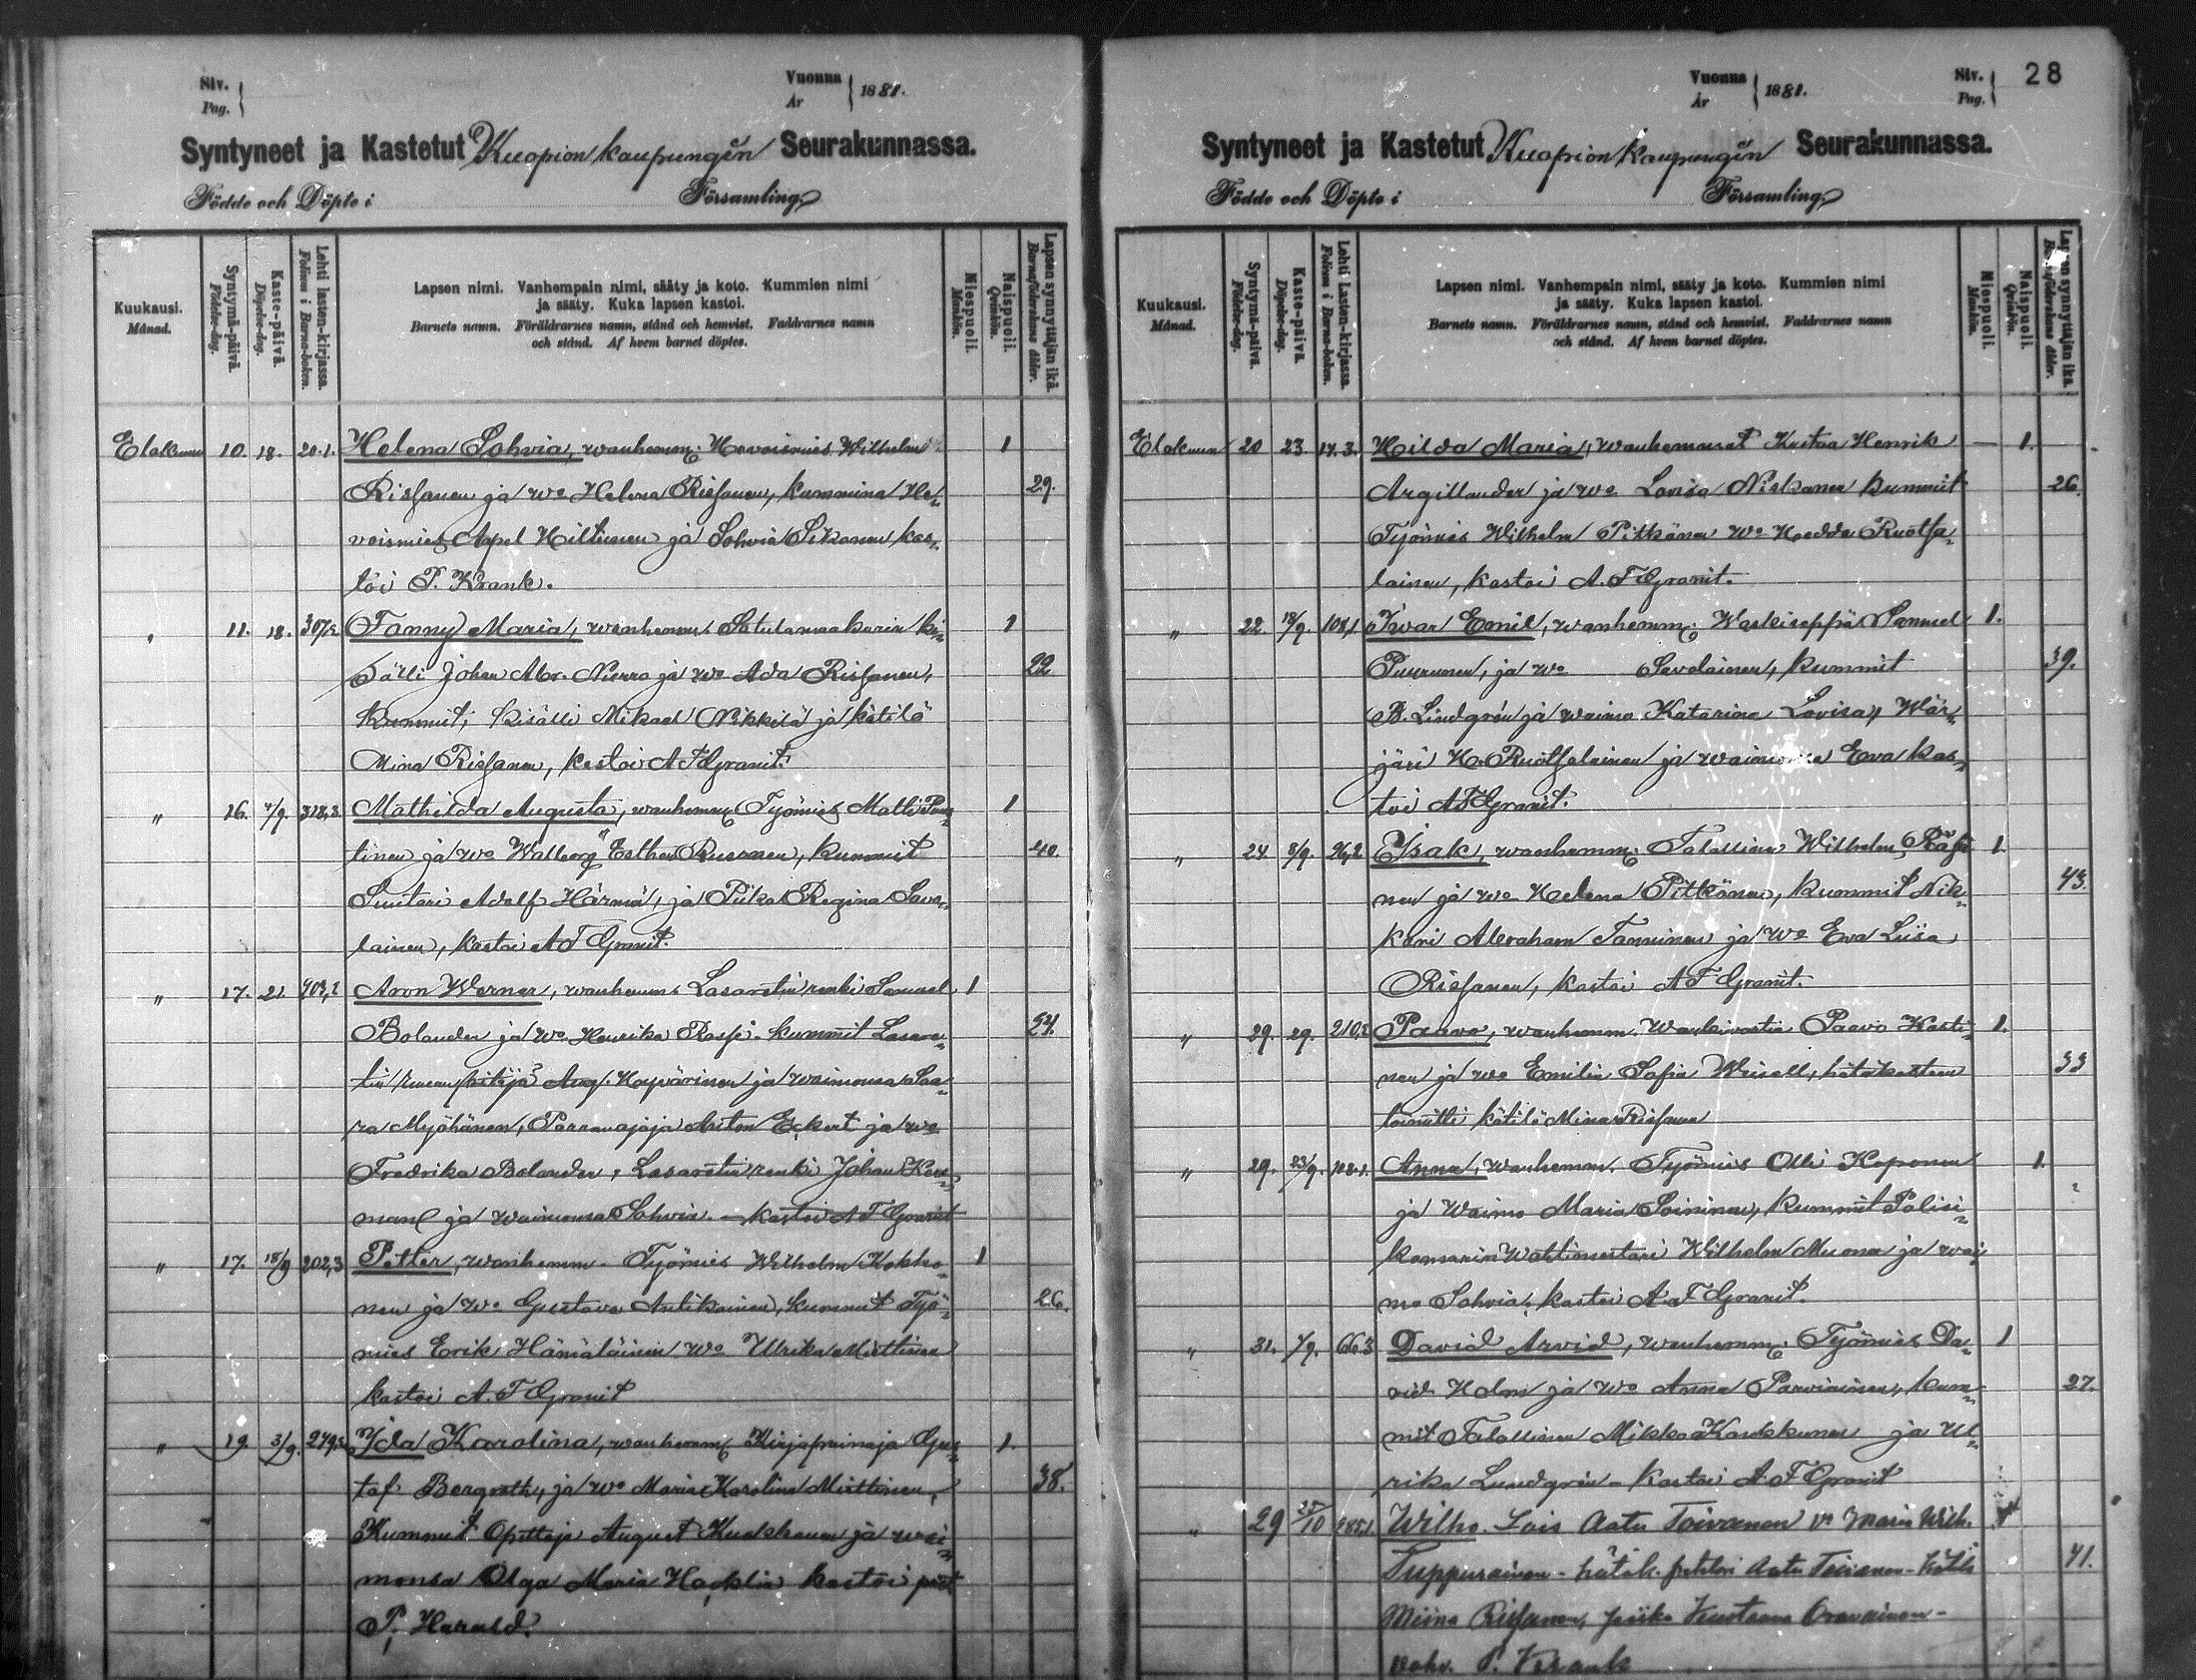 Siv.
Pag.
Vuonna
År
1881.
Syntyneet ja Kastetut Kuopion kaupungin Seurakunnassa.
Födde och Döpte i Församling
Kuukausi.
Månad.
Syntymä-päivä.
Födelse-dag.
Kaste-päivä.
Döpelse-dag.
Lehti lasten-kirjassa.
Folium i Barna-boken.
Lapsen nimi. Vanhempain nimi, sääty ja koto. Kummien nimi
ja sääty. Kuka lapsen kastoi.
Barnets namn. Föräldrarnes namn, stånd och hemvist. Faddrarnes namn
och stånd. Af hvem barnet döptes.
Miespuoli.
Mankön.
Naispuoli.
Qvinkön.
Lapsen synnyttäjän ikä.
Barnaföderskans ålder.
Elokuu 10. 18. 20.1. Helena Sohvia, wanhemm. Hevoismies Wilhelm 1
Rissanen ja wo Helena Rissanen, kummina He- 29.
voismies Apel Hiltunen ja Sohvia Sikanen kas-
toi P. Krank.
" 11. 18. Fanny Maria, wanhemm. Satulamaakarin ki- 1
sälli Johan Abr. Nierro ja wo Ada Rissanen, 22
Kummit; kisälli Mikael Nikkilä ja kätilö
Mina Rissanen, kastoi A F Granit
" 16. 4/9. 318,3 Mathilda Augusta, wanhemm. Työmies Matti 1
tinen ja wo Walborg Esther Rusanen, Kummit 40.
Suutari Adolf Härmä, ja Piika Regina Savo-
lainen, kastoi A F Granit.
" 17. 21. Aron Werner, wanhemm. Lasaretin renki Samuel 1
Bolander ja wo Henrika Rossi. kummit Lasare- 24.
tin Aug. Kayvärinen ja waimonsa Saa-
ra Myöhänen, Parranajaja Anton Eckert ja wo
Fredrika Bolander, Lasaretin renki Johan
man ja waimonsa Sohvia. - kastoi A F Granit
" 17. 18/9 202,3 Petter, wanhemm. Työmies Wilhelm Kokko- 1
nen ja wo Gustava Antikainen, kummit Työ- 26.
mies Erik Hämäläinen wo Ulrika Miettinen
kastoi A. F Granit
" 19. 3/9. Ida Karolina, wanhemm. Kirjaprainaja Gus- 1.
taf Bergroth, ja wo Maria Karolina Miettinen, 38.
Kummit Opettaja August Kuokkanen ja wai-
monsa Olga Maria Hacklin kastoi past
P. Harald.
Vuonna
År
1881.
Siv.
Pag.
28
Syntyneet ja Kastetut Kuopion kaupungin Seurakunnassa.
Födde och Döpte i Församling
Kuukausi.
Månad.
Syntymä-päivä.
Födelse-dag.
Kaste-päivä.
Döpelse-dag.
Lehti Lasten-kirjassa.
Folium i Barna-boken.
Lapsen nimi. Vanhempain nimi, sääty ja koto. Kummien nimi
ja sääty. Kuka lapsen kastoi.
Barnets namn. Föräldrarnes namn, stånd och hemvist. Faddrarnes namn
och stånd. Af hvem barnet döptes.
Miespuoli.
Mankön.
Naispuoli.
Qvinkön.
Lapsen synnyttäjän ikä.
Barnaföderskans ålder.
Elokuu 20 23. 14.3. Hilda Maria, wanhemmat Kustaa Henrik — 1.
Argillander ja wo Lovisa Niskanen kummit 26.
Työmies Wilhelm Pitkänen wo Hedda Ruotsa-
lainen, kastoi A. F Granit.
" 22. 18/9. 108,1 Iwar Emil, wanhemm. Waskiseppä Samuel 1.
Puurunen, ja wo Savolainen, kummit 39.
B. Lindgrén ja waimo Katarina Lovisa, Wär-
järi H. Ruotsalainen ja waimonsa Eva kas-
toi A F Granit.
" 24. 8/9. 26,2 Isak, wanhemm. Talollinen Wilhelm Räsä 1
nen ja wo Helena Pitkänen, kummit Nik- 43.
kari Abraham Tanninen ja wo Eva Liisa
Rissanen, kastoi A F Granit.
" 29. 29. Paavo, wanhemm. Wankivartia Paavo Kasti- 1.
nen ja wo Emilia Sofia Weisell, hätäkasteen 33
toimitti kätilö Mina Rissanen
" 29. 23/9. 108.1. Anna, wanhemm. Työmies Olli Koponen 1.
ja Waimo Maria Soininen, Kummit Polisi- ?
kamarin Wahtimestari Wilhelm Muona ja wai-
mo Sohvia, kastoi A. F Granit.
" 31. 4/9. 66.3 David Arvid, wanhemm. Työmies Da- 1
vid Holm ja wo Anna Parviainen, kum- 27.
mit Talollinen Mikko Kaukkunen ja Ul-
rika Lundgrén - kastoi A. F Granit
" 29 25/10 285.1 Wilho. Isäs Aatu Toivanen vo Maria Wilh.
Tuppurainen - hätäk. Aatu Toivanen - kätilö 41.
Miina Rissanen, piika Kustaava Oravainen -
vahv. P. Krank